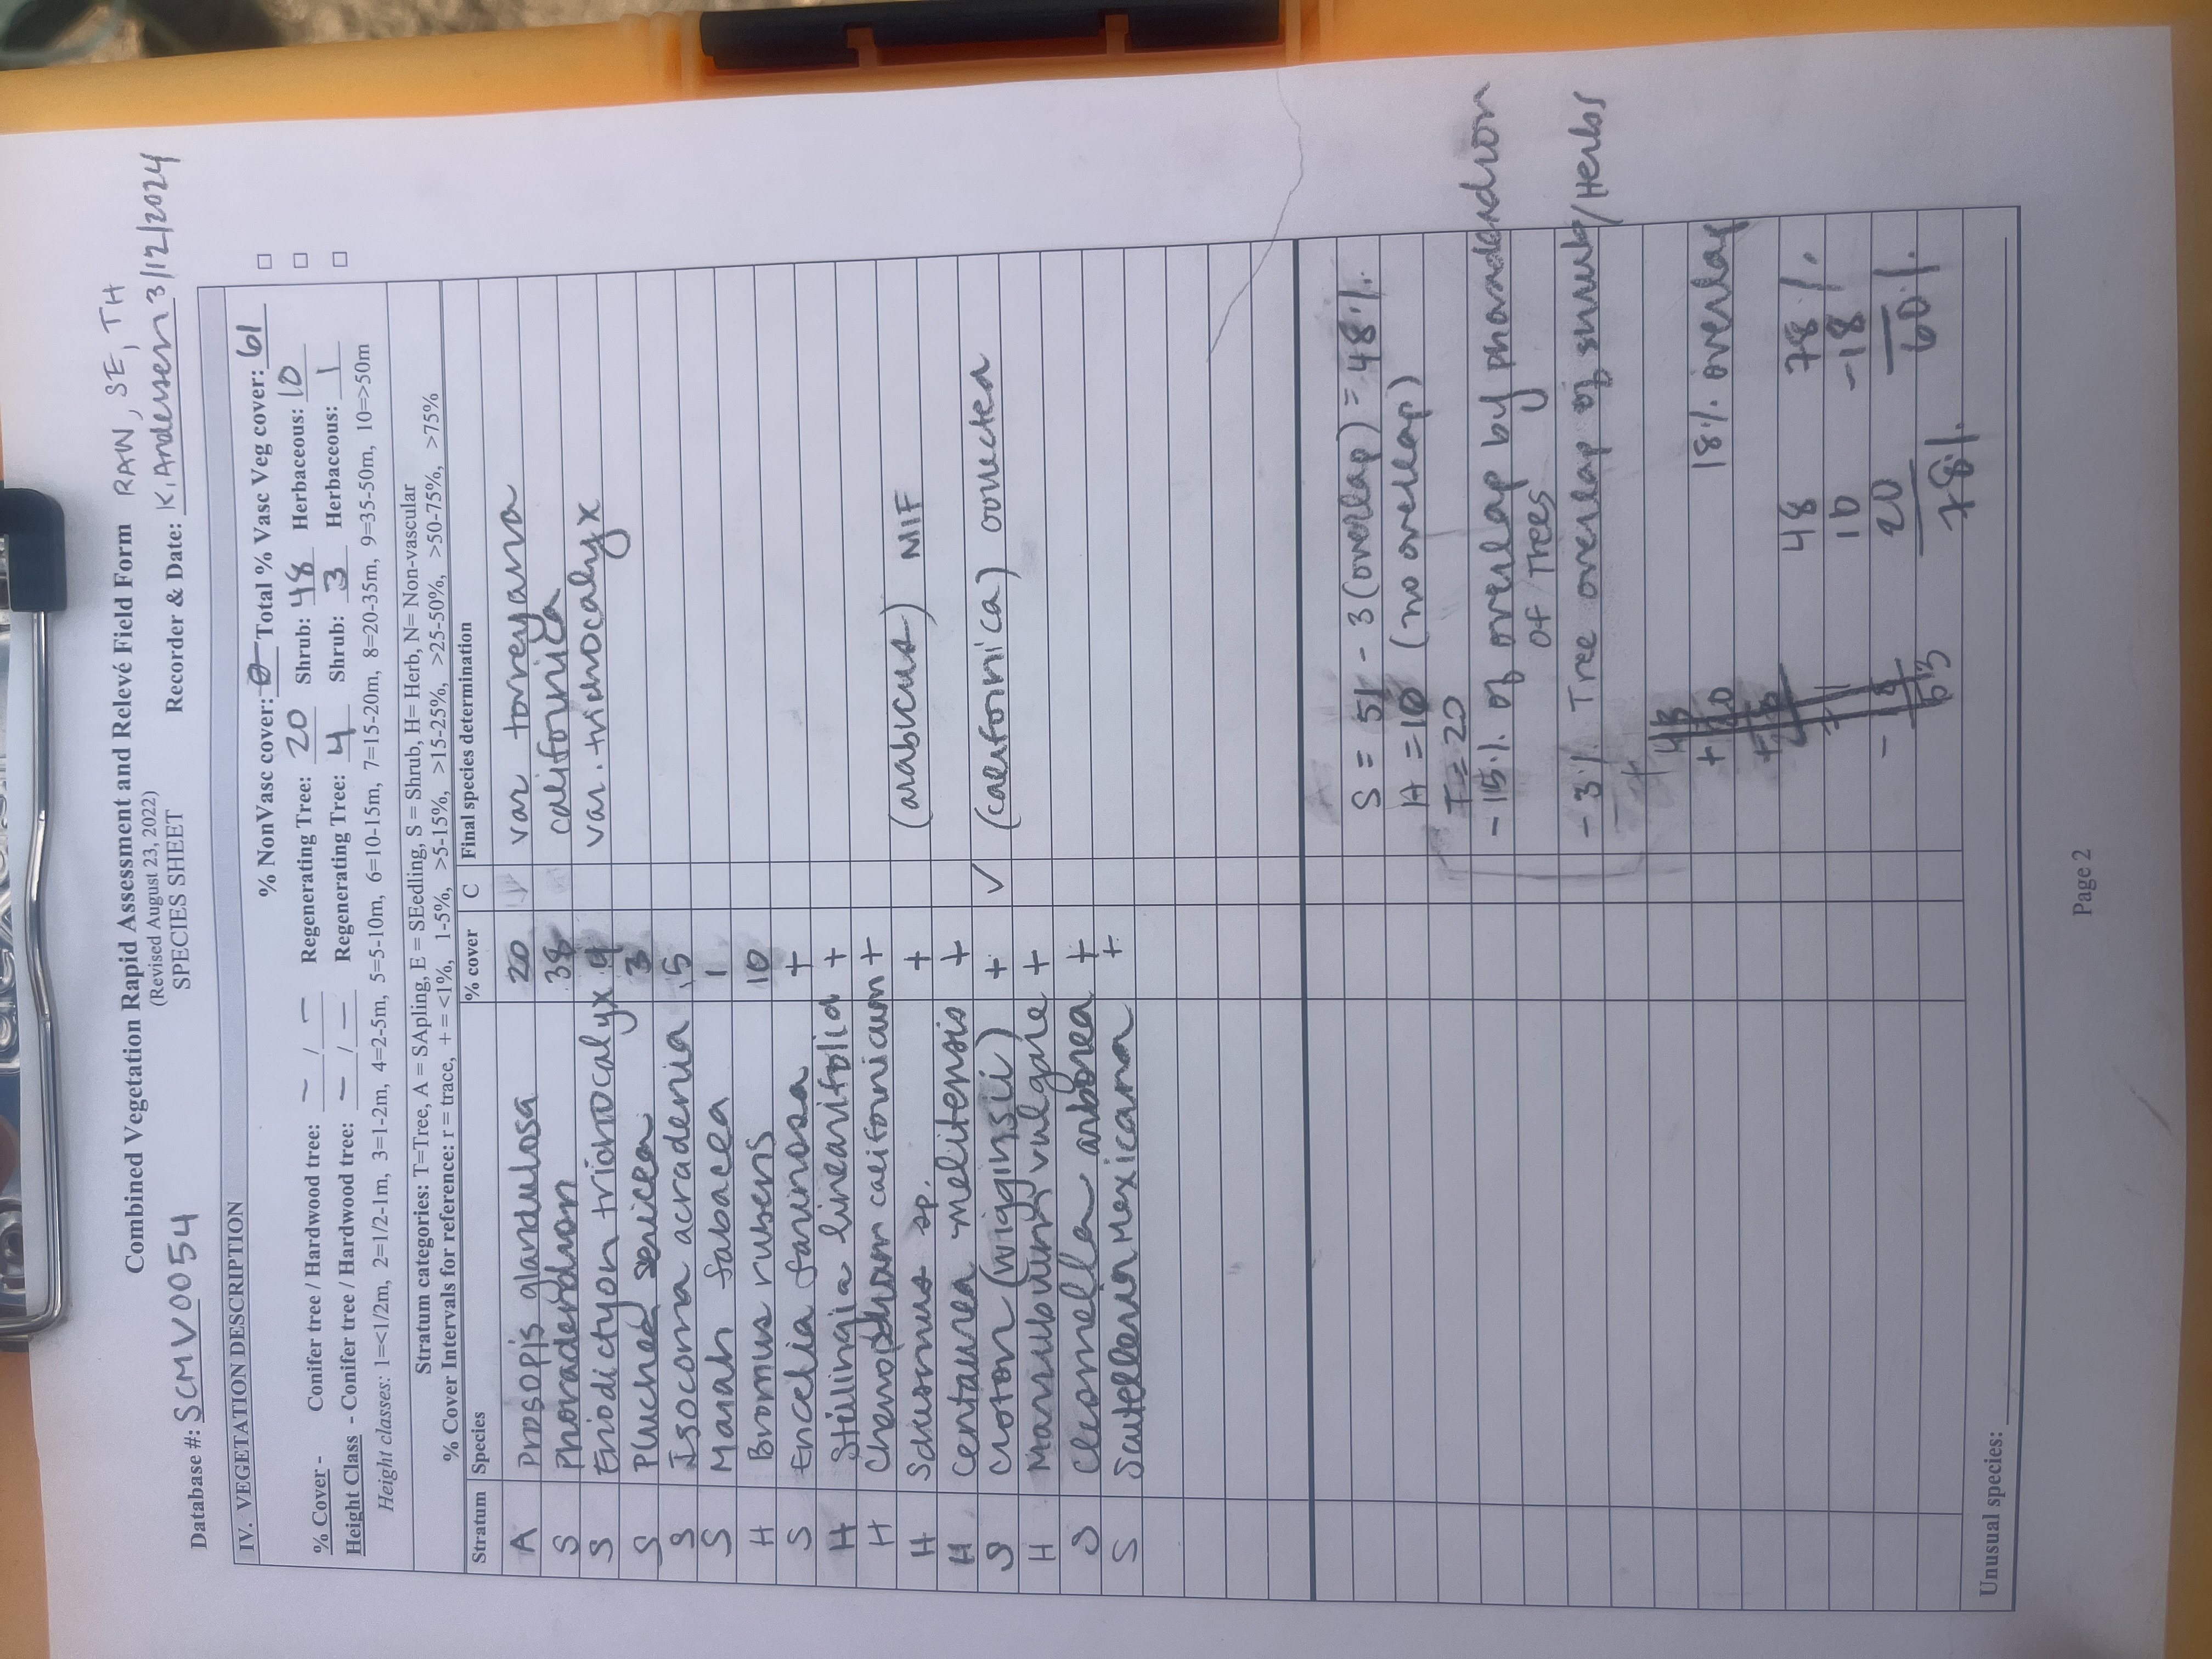 Combined Vegetation Rapid Assessment and Relevé Field Form RAW, SE, TH
(Revised August 23, 2022)
Database #: SCMV0054 SPECIES SHEET Recorder & Date: K. Andersen 3/12/2024
IV. VEGETATION DESCRIPTION
% NonVasc cover: 0 Total % Vasc Veg cover: 61 □
% Cover - Conifer tree / Hardwood tree: – / – Regenerating Tree: 20 Shrub: 48 Herbaceous: 10 □
Height Class - Conifer tree / Hardwood tree: – / – Regenerating Tree: 4 Shrub: 3 Herbaceous: 1 □
Height classes: 1=<1/2m, 2=1/2-1m, 3=1-2m, 4=2-5m, 5=5-10m, 6=10-15m, 7=15-20m, 8=20-35m, 9=35-50m, 10=>50m
Stratum categories: T=Tree, A = SApling, E = SEedling, S = Shrub, H= Herb, N= Non-vascular
% Cover Intervals for reference: r = trace, + = <1%, 1-5%, >5-15%, >15-25%, >25-50%, >50-75%, >75%
Stratum Species % cover C Final species determination
A Prosopis glandulosa 20 var torreyana
S Phoradendron 38 californica
S Eriodictyon trichocalyx 4 var. trichocalyx
S Pluchea sericea 3
S Isocoma acradenia 5
S Marah fabacea 1
H Bromus rubens 10
S Encelia farinosa +
H Stillingia linearifolia +
H Chenopodium californicum +
H Schismus sp. + (arabicus) NIF
H Centaurea melitensis +
S Croton (wigginsii) + ✓ (californica) corrected
H Marrubium vulgare +
S Cleomella arborea +
S Scutellaria mexicana +
S = 51 - 3 (overlap) = 48%
H = 10 (no overlap)
T = 20
- 15% of overlap by phoradendron
of Trees
- 3% Tree overlap of shrub/Herbs
18% overlap
48 78%
10 -18
20 60%
78%
63
Unusual species:
Page 2